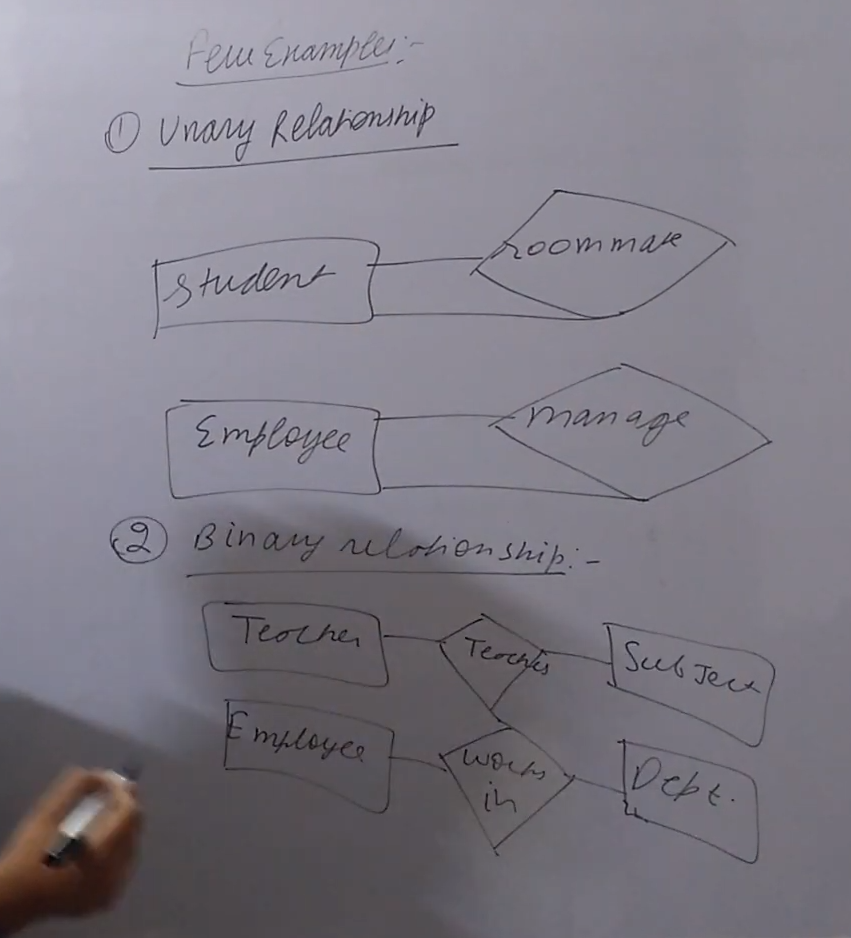 Few Examples:-
① Unary Relationship
Student roommate
Employee manage
② Binary relationship:-
Teacher Teaches Subject
Employee works in Dept.